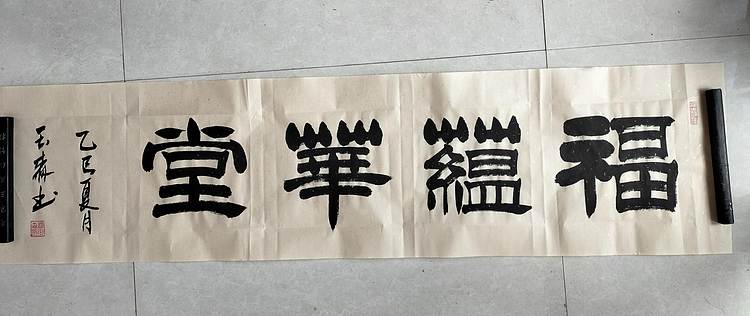 福蘊華堂
乙巳夏月
玉森书